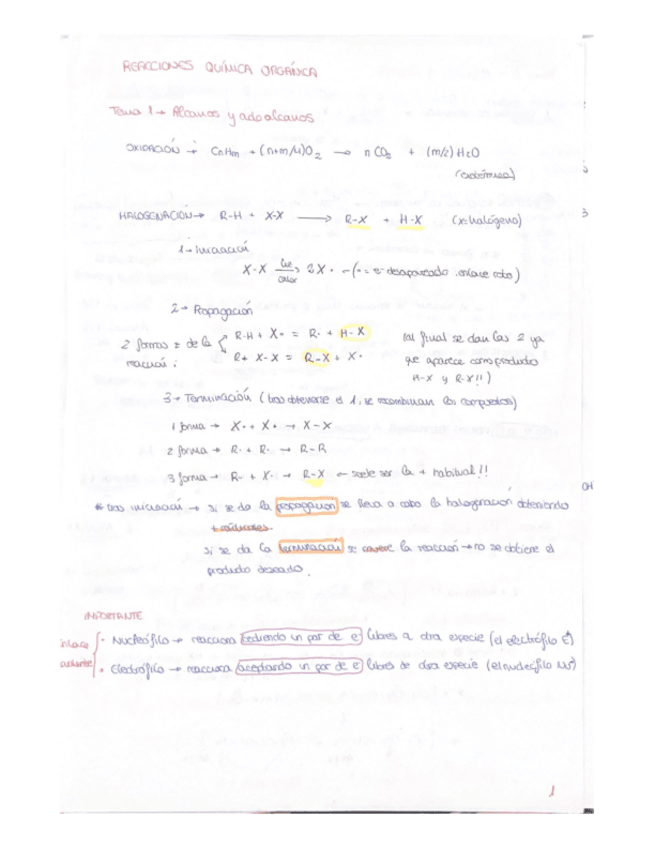 REACCIONES QUÍMICA ORGÁNICA
Tema 1 → Alcanos y
OXIDACIÓN → CnHm + (n+m/4)O2 → n CO2 + (m/2) H2O
(exotérmica)
HALOGENACIÓN → R-H + X-X → R-X + H-X (x: halógeno)
1 → Iniciación
X-X luz calor 2X• → (• = e- desapareado, enlace roto)
2 → Propagación
2 formas = de la reacción:
R-H + X• = R• + H-X
R+ X-X = R-X + X•
(al final se dan las 2 ya
que aparece como producto
H-X y R-X!!)
3 → Terminación (tras obtenerse el 1, se recombinan los compuestos)
1 forma → X• + X• → X-X
2 forma → R• + R• → R-R
3 forma → R• + X• → R-X ← suele ser la + habitual!!
* tras iniciación → si se da la propagación se lleva a cabo la halogenación obteniendo
+ radicales.
si se da la terminación se la reacción → no se obtiene el
producto deseado.
IMPORTANTE
enlace
• Nucleófilo → reacciona cediendo un par de e- libres a otra especie (el electrófilo E+)
• Electrófilo → reacciona aceptando un par de e- libres de otra especie (el nucleófilo Nu-)
1